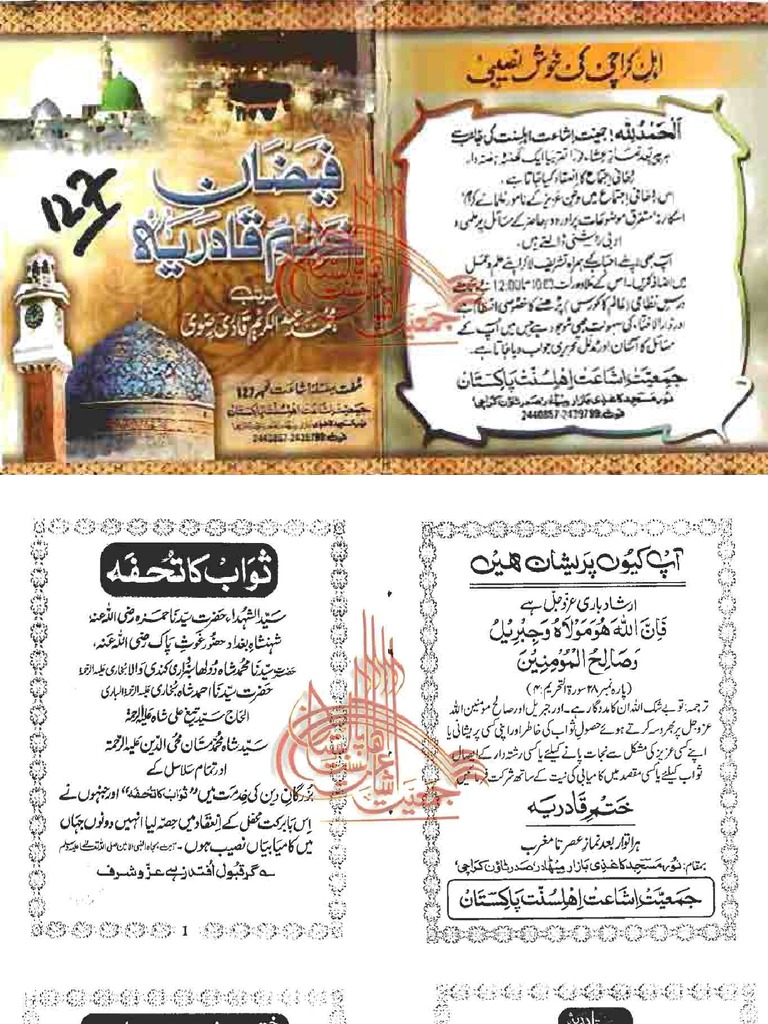 اہلِ کراچی کی خوش نصیبی
اَلْحَمْدُ لِلّٰہ! جمعیت اشاعت اہلسنت کی جانب سے
ہر پیر بعد نماز عشاء
رُوحانی اجتماع کا انعقاد کیا جاتا ہے۔
اس رُوحانی اجتماع میں وطن عزیز کے نامور علمائے کرام
اسکالرز متفرق موضوعات پر اور دورِ حاضر کے مسائل پر علمی و
ادبی روشنی ڈالتے ہیں۔
آپ بھی اپنے احباب کے ہمراہ تشریف لا کر اپنے علم و عمل
میں اضافہ کریں۔ اس کے علاوہ رات 10:00 تا 12:00 بجے
درسِ نظامی (عالم کا کورس) پڑھنے کا خصوصی انتظام ہے
اور دار الافتاء کی سہولت بھی موجود ہے جس میں آپ کے
مسائل کا آسان اور مدلل تحریری جواب دیا جاتا ہے۔
جمعیّت اشاعت اہلسنّت پاکستان
نور مسجد کاغذی بازار میٹھادر صدر ٹاؤن کراچی
فون: 2439799-2440857
127
فیضان
ختم قادریہ
مرتب
محمد عبد الکریم قادری رضوی
مفت سلسلہ اشاعت نمبر 127
جمعیّت اشاعت اہلسنّت پاکستان
نور مسجد کاغذی بازار میٹھادر صدر ٹاؤن کراچی
فون: 2439799-2440857
آپ کیوں پریشان ہیں
ارشاد باری عزوجل ہے
فَاِنَّ اللّٰهَ هُوَ مَوْلَاهُ وَجِبْرِيْلُ
وَصَالِحُ الْمُؤْمِنِيْنَ
(پارہ نمبر ۲۸ سورۃ التحریم: ۴)
ترجمہ: تو بے شک اللہ ان کا مددگار ہے۔ اور جبریل اور صالح مومنین اللہ
عزوجل پر بھروسہ کرتے ہوئے حصولِ ثواب کی خاطر اور اپنی کسی پریشانی یا
اپنے کسی عزیز کی مشکل سے نجات پانے کیلئے یا کسی رشتہ دار کے ایصال
ثواب کیلئے یا کسی مقصد میں کامیابی کی نیت کے ساتھ شرکت فرمائیں
ختمِ قادریہ
ہر اتوار بعد نمازِ عصر تا مغرب
بمقام: نور مسجد کاغذی بازار میٹھادر صدر ٹاؤن کراچی
جمعیّت اشاعت اہلسنّت پاکستان
ثواب کا تحفہ
سیّد الشہداء حضرت سیّدنا حمزہ رضی اللہ عنہ
شہنشاہِ بغداد حضور غوثِ پاک رضی اللہ عنہ،
حضرت سیّدنا محمد شاہ دولہا سبزواری کندی والا بخاری علیہ الرحمۃ
حضرت سیّدنا احمد شاہ بخاری علیہ الرحمۃ الباری
الحاج سیّد شفیع علی شاہ علیہ الرحمۃ
سیّد شاہ محمد مستان محی الدین علیہ الرحمۃ
اور تمام سلاسل کے
بزرگانِ دین کی خدمت میں "ثواب کا تحفہ" اور جنہوں نے
اس بابرکت محفل کے انعقاد میں حصہ لیا انہیں دونوں جہاں
میں کامیابیاں نصیب ہوں۔
گر قبول افتد زہے عزّ و شرف
1